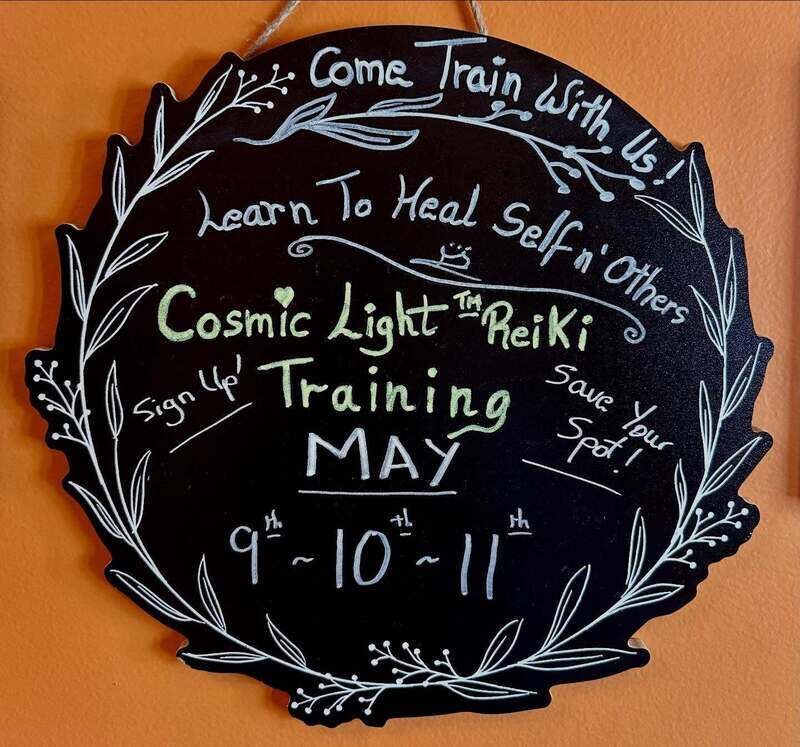 Come Train With Us!
Learn To Heal Self n' Others
Cosmic Light ™ Reiki
Training
Sign Up!
Save Your
Spot!
MAY
9th ~ 10th ~ 11th